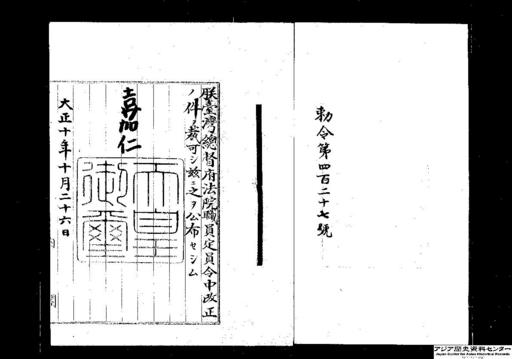 勅令第四百二十七號
朕臺灣總督府法院職員定員令中改正
ノ件ヲ裁可シ茲ニ之ヲ公布セシム
嘉仁
天皇
御璽
大正十年十月二十六日
内閣
アジア歴史資料センター
Japan Center for Asian Historical Records